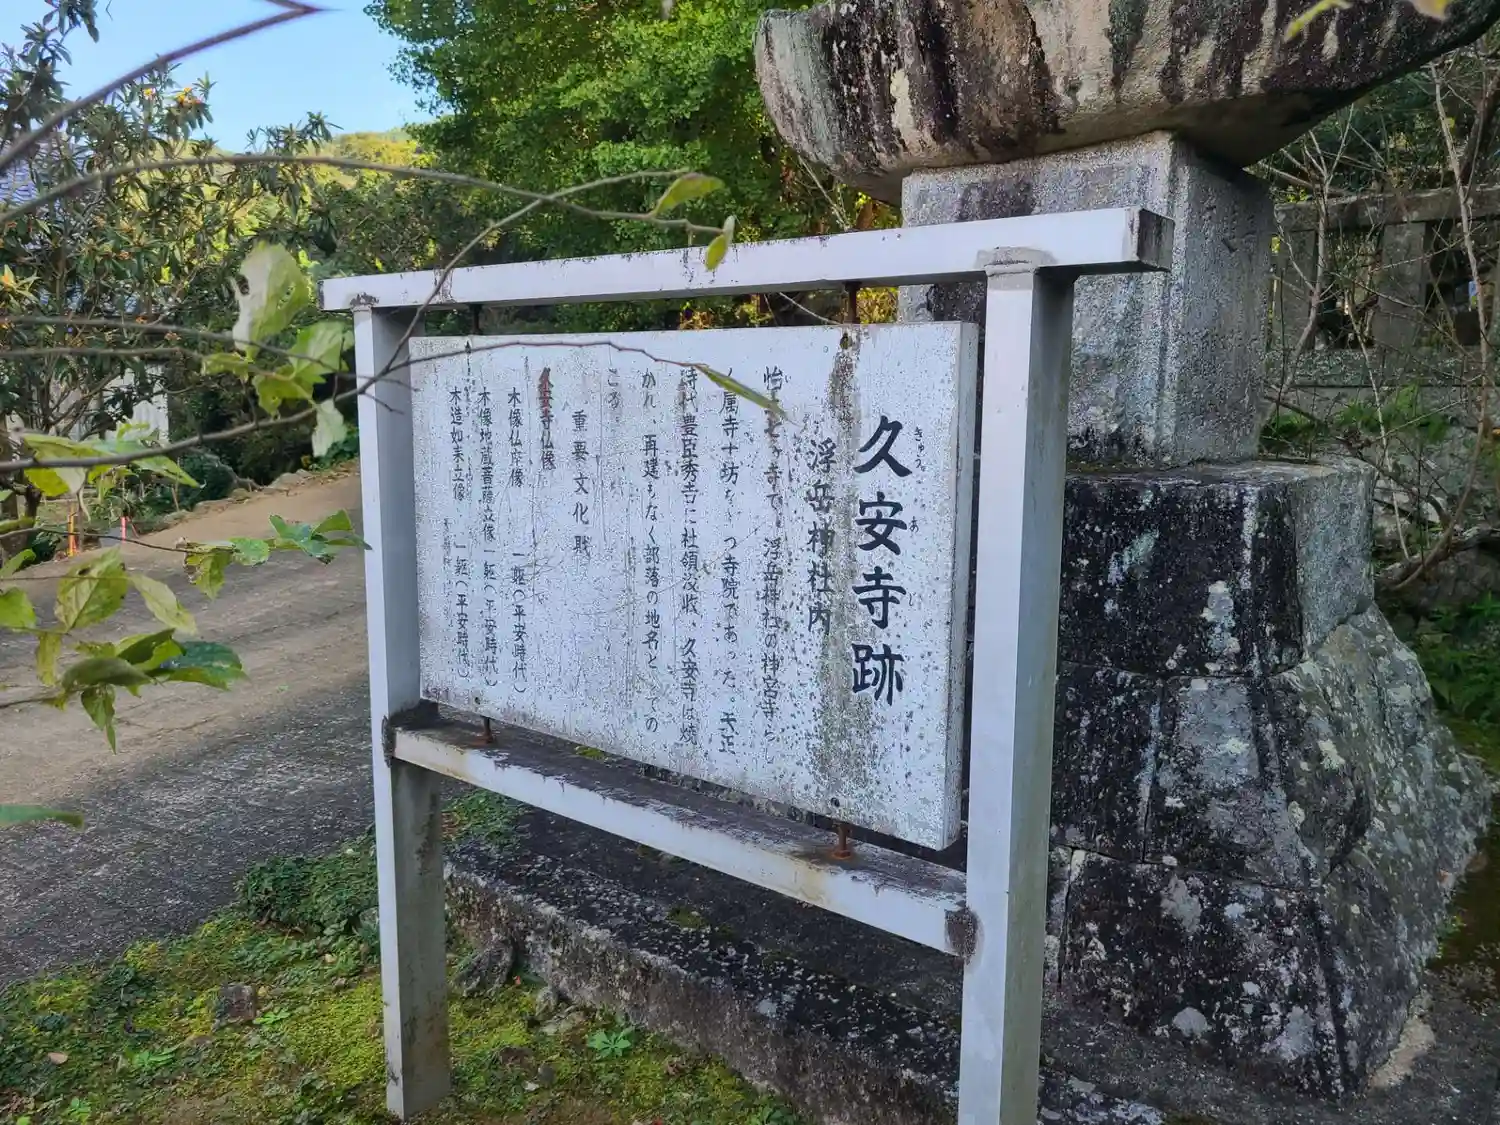 久安寺跡
きゅう あ じ
浮岳神社内
怡土七ヶ寺で、浮岳神社の神宮寺ら
く属寺十坊をもつ寺院であった。天正
時代豊臣秀吉に社領没収、久安寺は焼
かれ、再建もなく部落の地名としての
こる。
重要文化財
久安寺仏像
木像仏座像 一躯(平安時代)
木像地蔵菩薩立像 一躯(平安時代)
木造如来立像 一躯(平安時代)